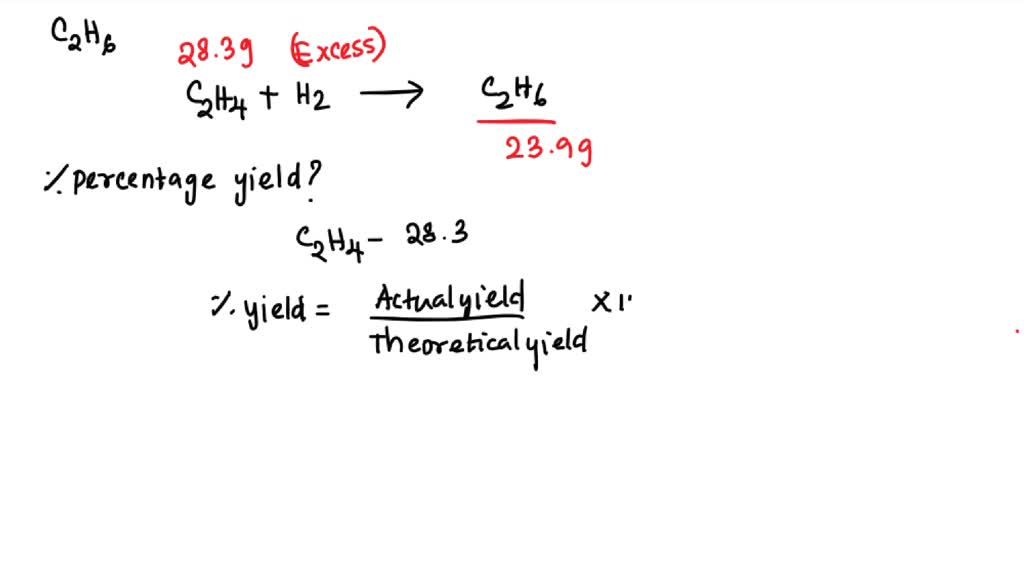 C2H6
28.39 (Excess)
C2H4 + H2 ⟶ C2H6
23.99
% percentage yield?
C2H4 - 28.3
% yield = Actual yield / Theoretical yield X 1